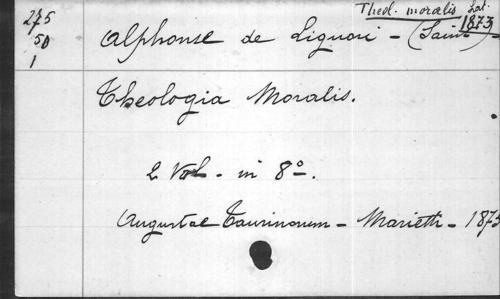 Theol. moralis Lat.
1873
275
50
1
Alphonse de Liguori - (Saint) -
Theologia Moralis.
2 Vol - in 8°.
Augustae Taurinorum - Marietti - 1873